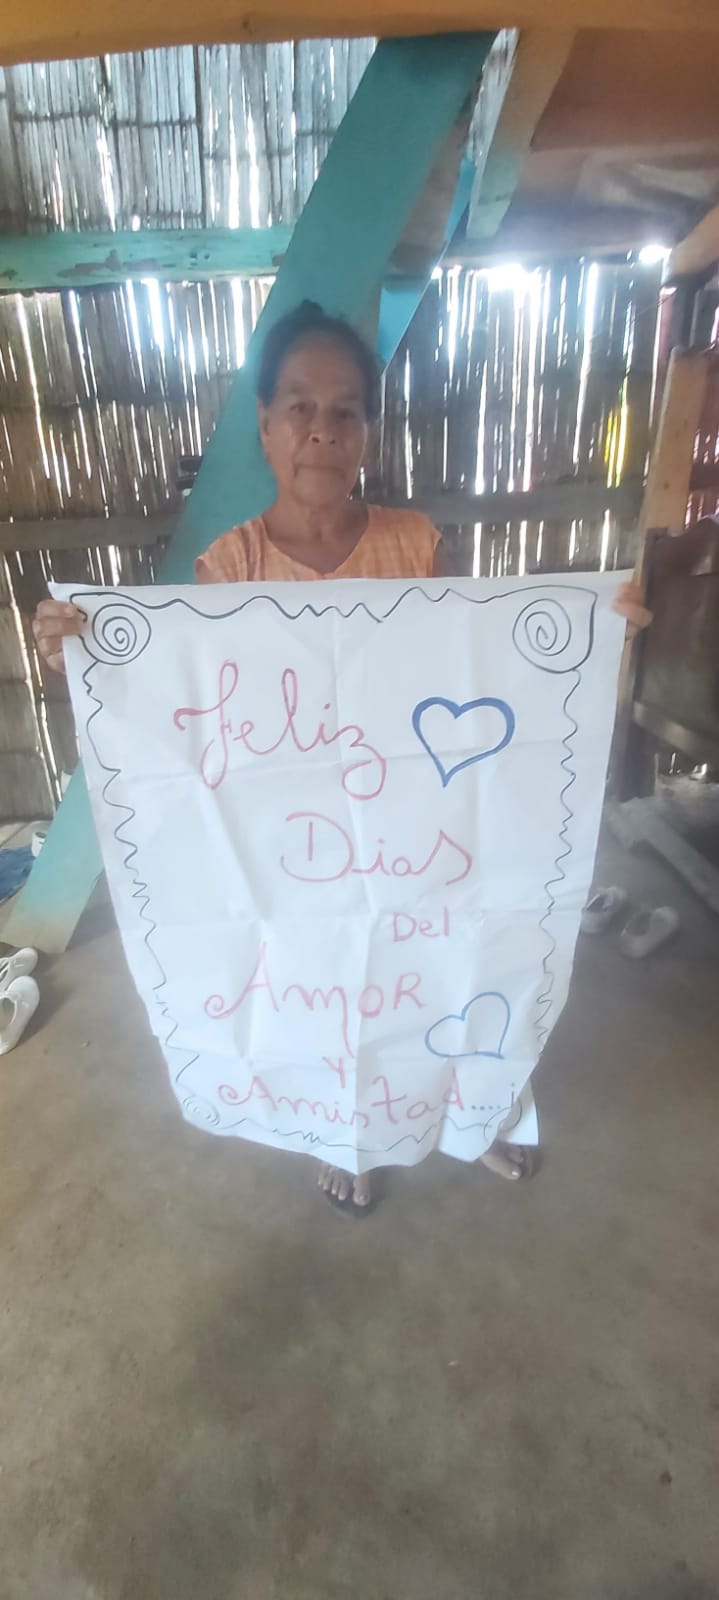 Feliz
Dias
Del
Amor
y
Amistad....¡